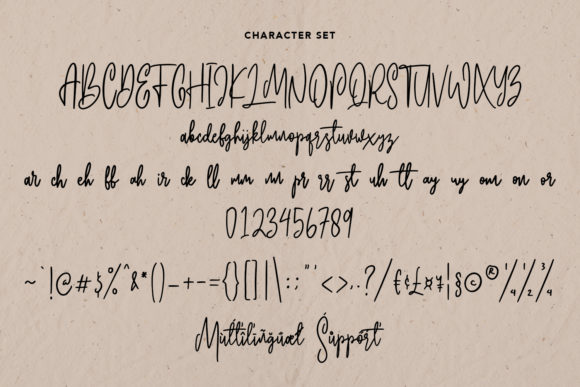 CHARACTER SET
ABCDEFGHIJKLMNOPQRSTUVWXYZ
abcdefghijklmnopqrstuvwxyz
ar ch eh ff ah ir ck ll mm nn pr rr st uh tt ay uy om on or
0123456789
~`!@#$%^&*()_+-={}[]|\:;"'<>,.?/€¢£¤¥¦§©®½¼¾
Müťľîlîñğûæł Ŝůppőŕť